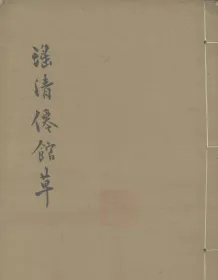 瑤清僊館草